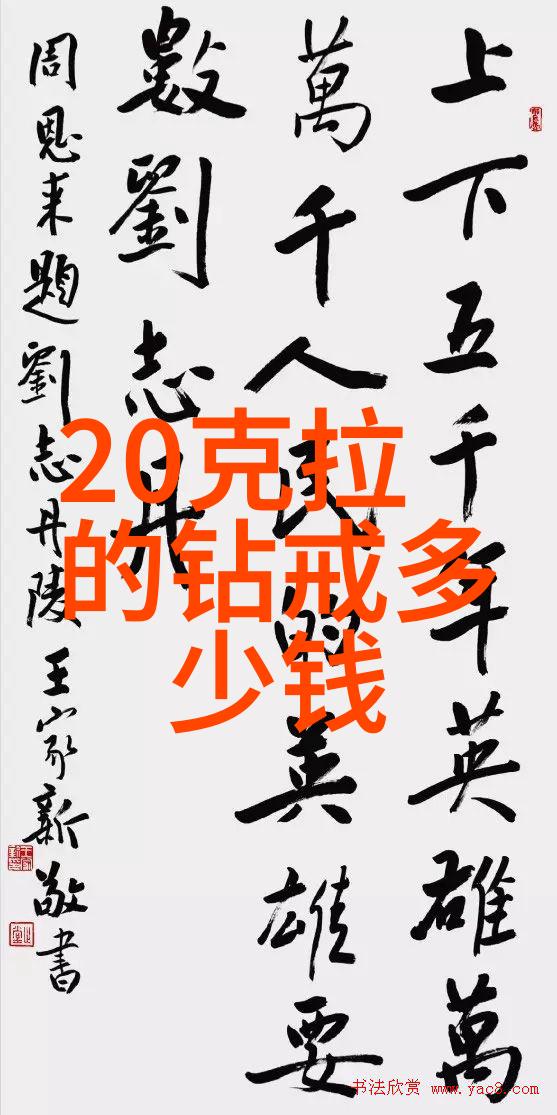 上下五千年英雄萬
萬千人民的英雄要
數劉志丹
周恩来題劉志丹陵王家新敬書
20克拉
的钻戒多
少钱
书法欣赏 www.yac8.com